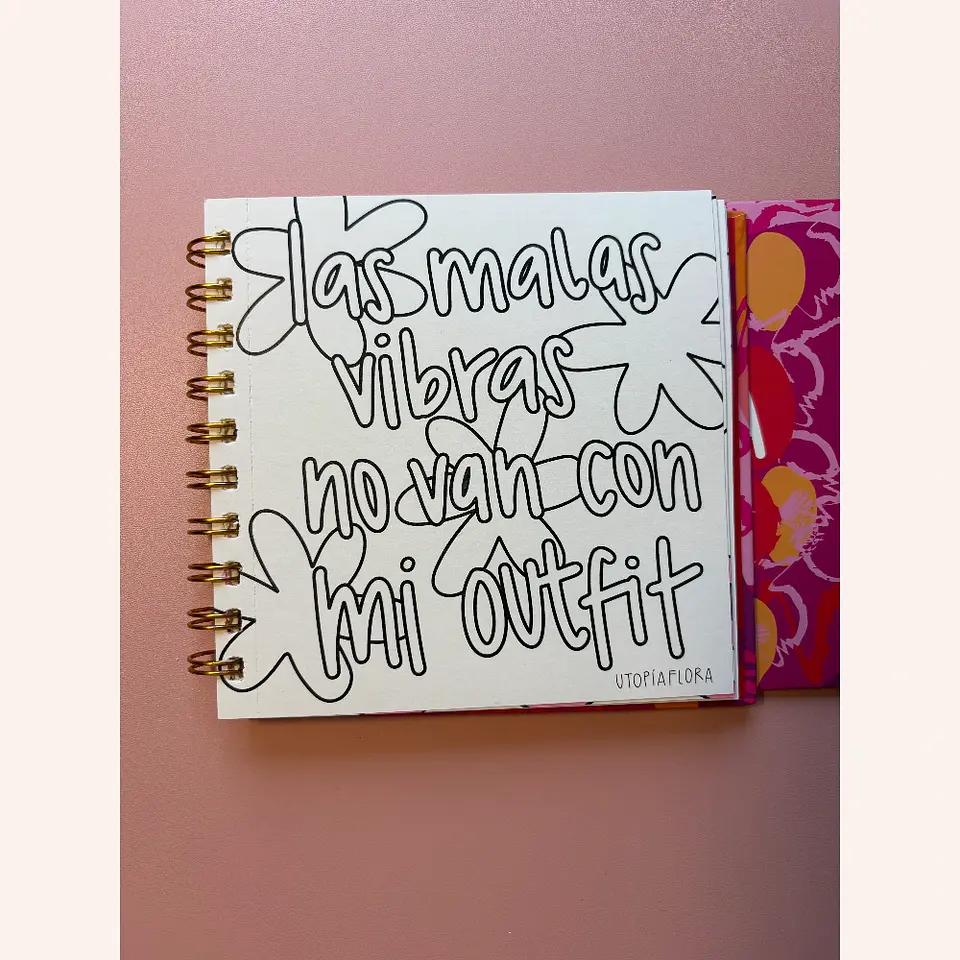 las malas
vibras
no van con
mi outfit
UTOPÍAFLORA